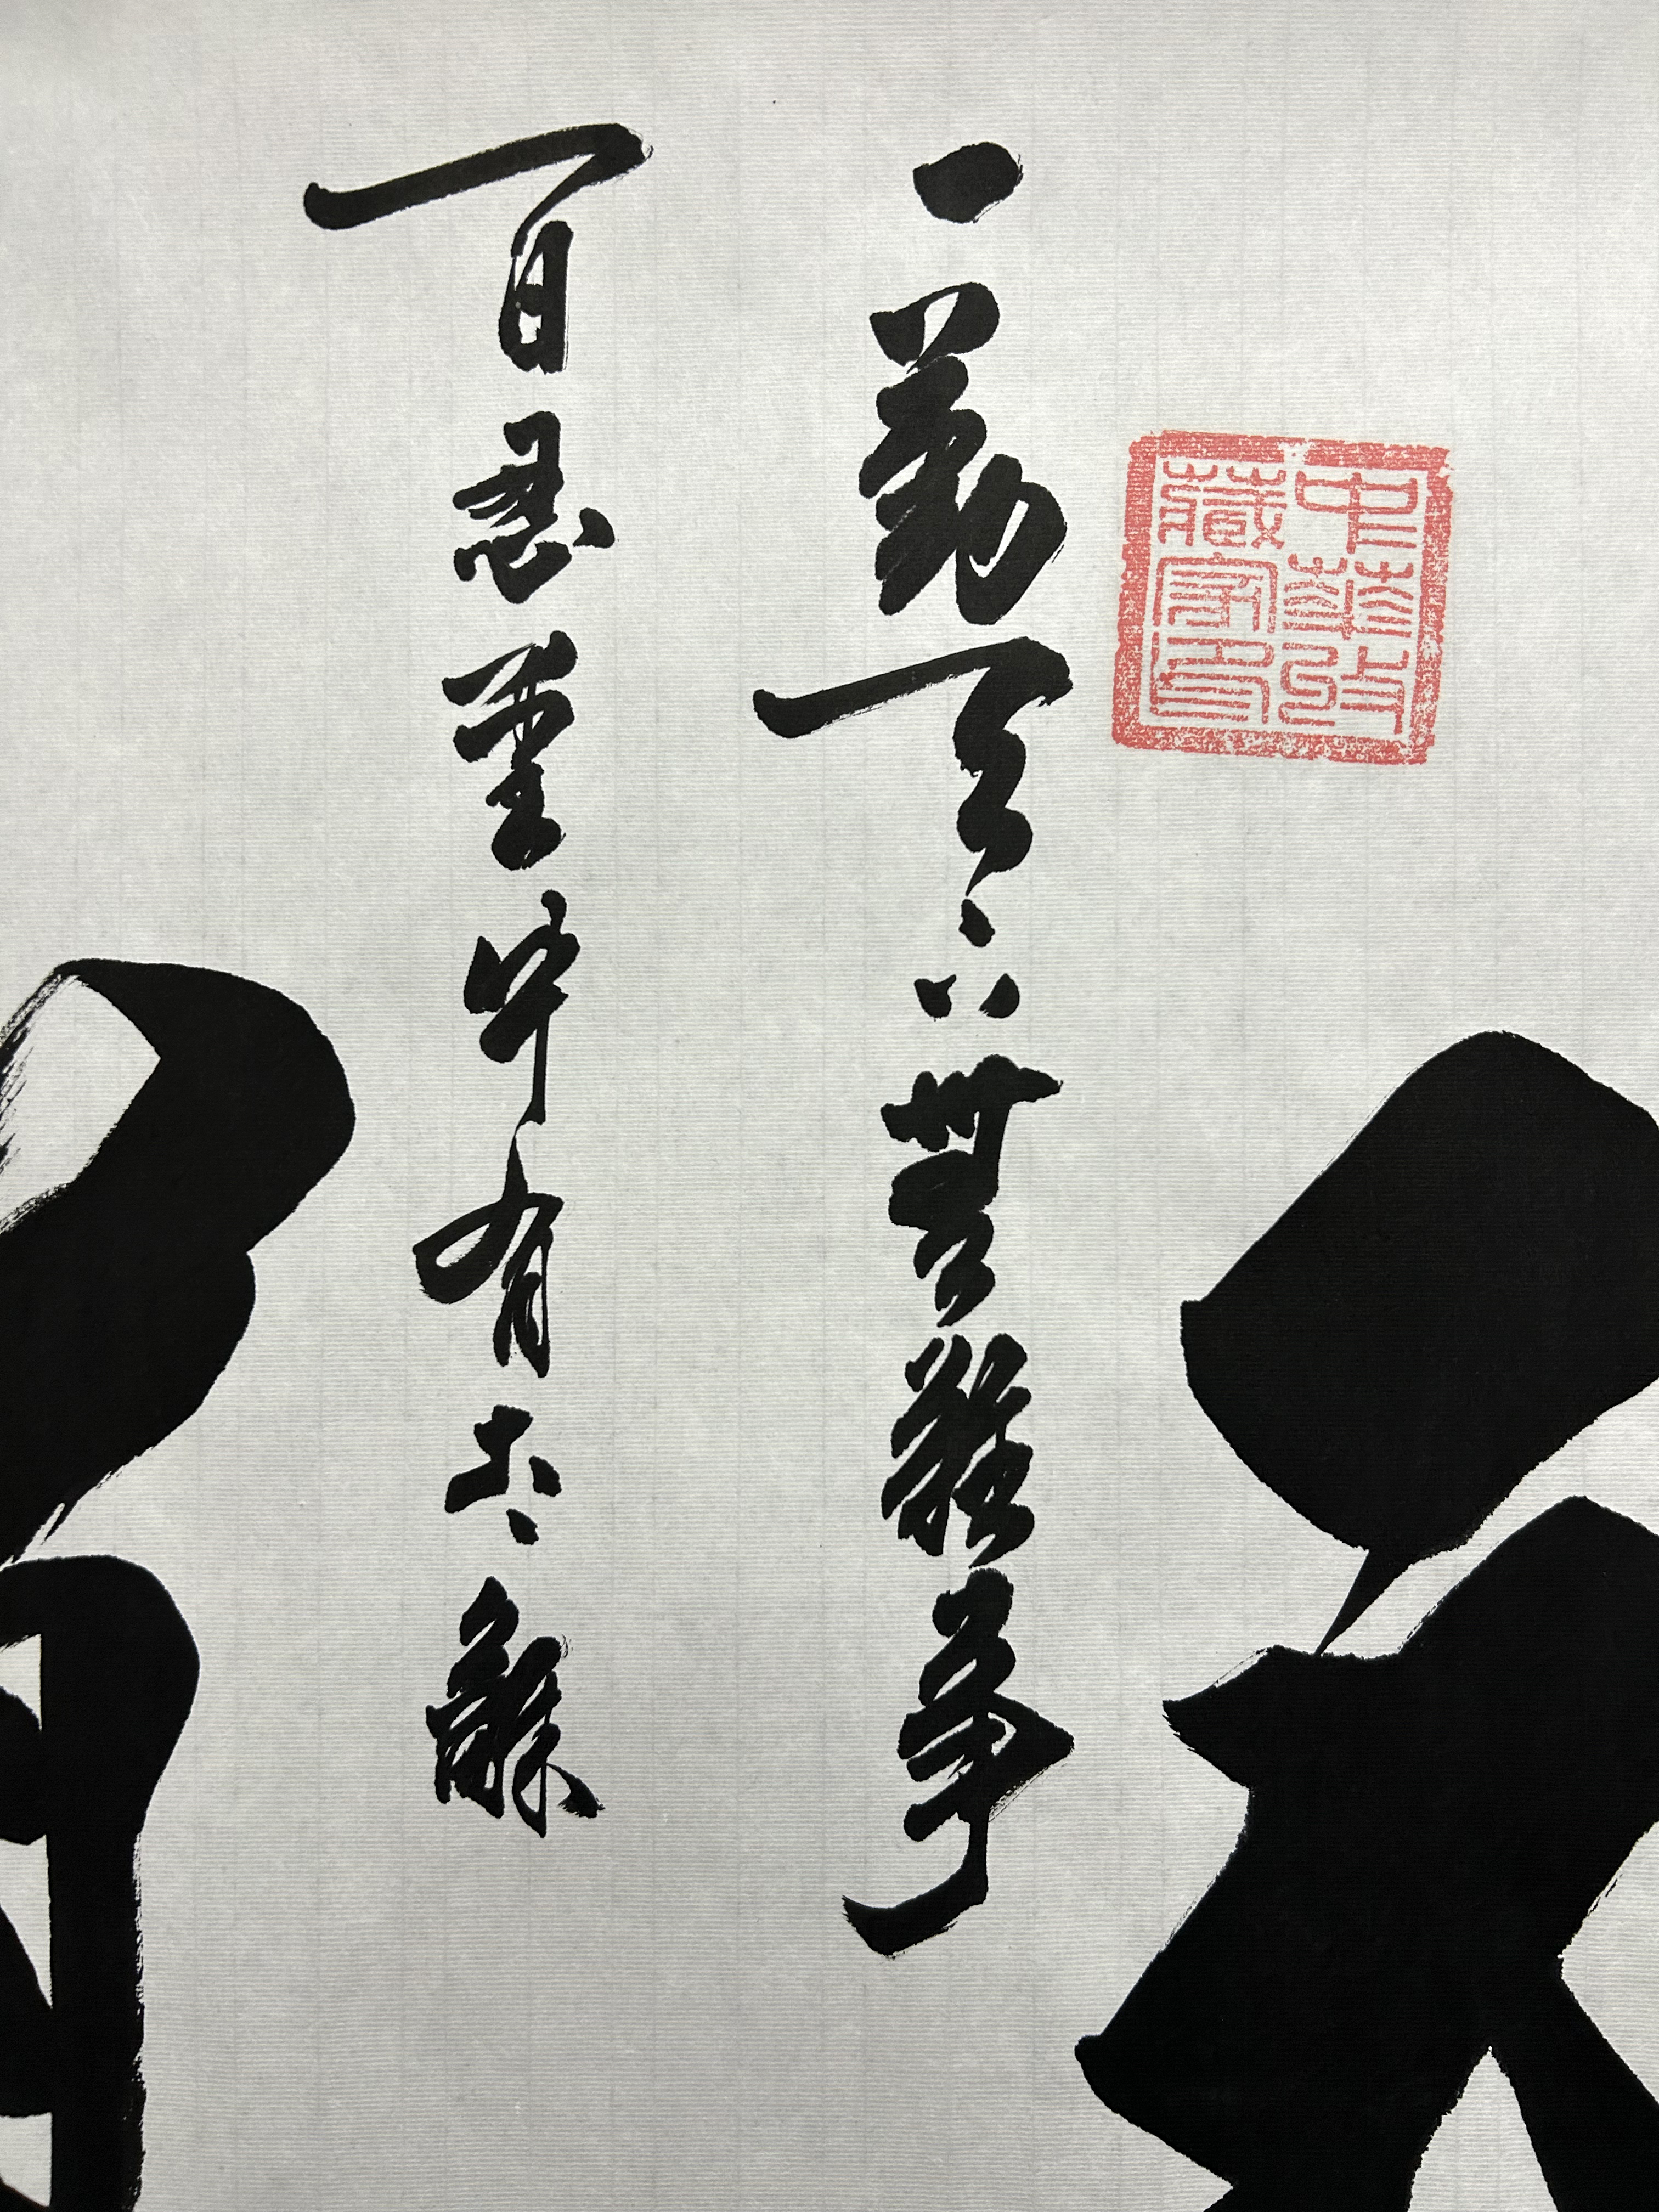 一勤天下無難事
百忍堂中有太和
中華收藏家印